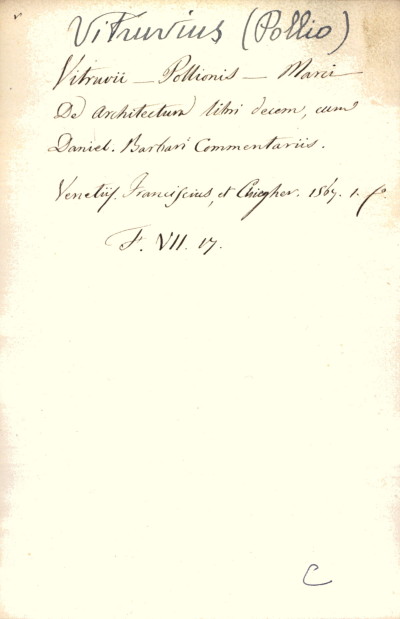 Vitruvius (Pollio)
Vitruvii — Pollionis — Marci
De Architectura libri decem, cum
Daniel. Barbari Commentariis.
Venetiis. Franciscius, et Chiegher. 1567. 1. fo.
F. VII. 17.
C